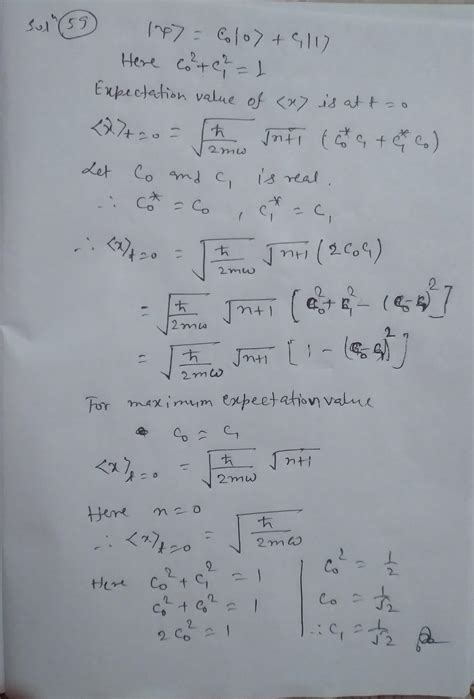 Solⁿ (59) |ψ> = C₀|0> + C₁|1>
Here C₀² + C₁² = 1
Expectation value of <x> is at t = 0
<x>t=0 = √(ħ/2mω) √n+1 (C₀* C₁ + C₁* C₀)
Let C₀ and C₁ is real.
∴ C₀* = C₀ , C₁* = C₁
∴ <x>t=0 = √(ħ/2mω) √n+1 (2C₀C₁)
= √(ħ/2mω) √n+1 [C₀² + C₁² - (C₀-C₁)²]
= √(ħ/2mω) √n+1 [1 - (C₀-C₁)²]
For maximum expectation value
C₀ = C₁
<x>t=0 = √(ħ/2mω) √n+1
Here n=0
∴ <x>t=0 = √(ħ/2mω)
Here C₀² + C₁² = 1
C₀² + C₀² = 1
2C₀² = 1
C₀² = 1/2
C₀ = 1/√2
∴ C₁ = 1/√2